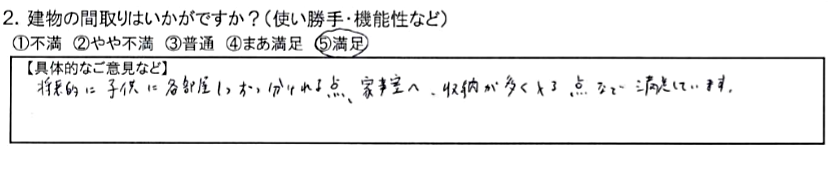 2. 建物の間取りはいかがですか？(使い勝手・機能性など)
①不満 ②やや不満 ③普通 ④まあ満足 ⑤満足
【具体的なご意見など】
将来的に子供に各部屋しっかり分けれる点、家事室へ、収納が多くとる点などで満足しています。